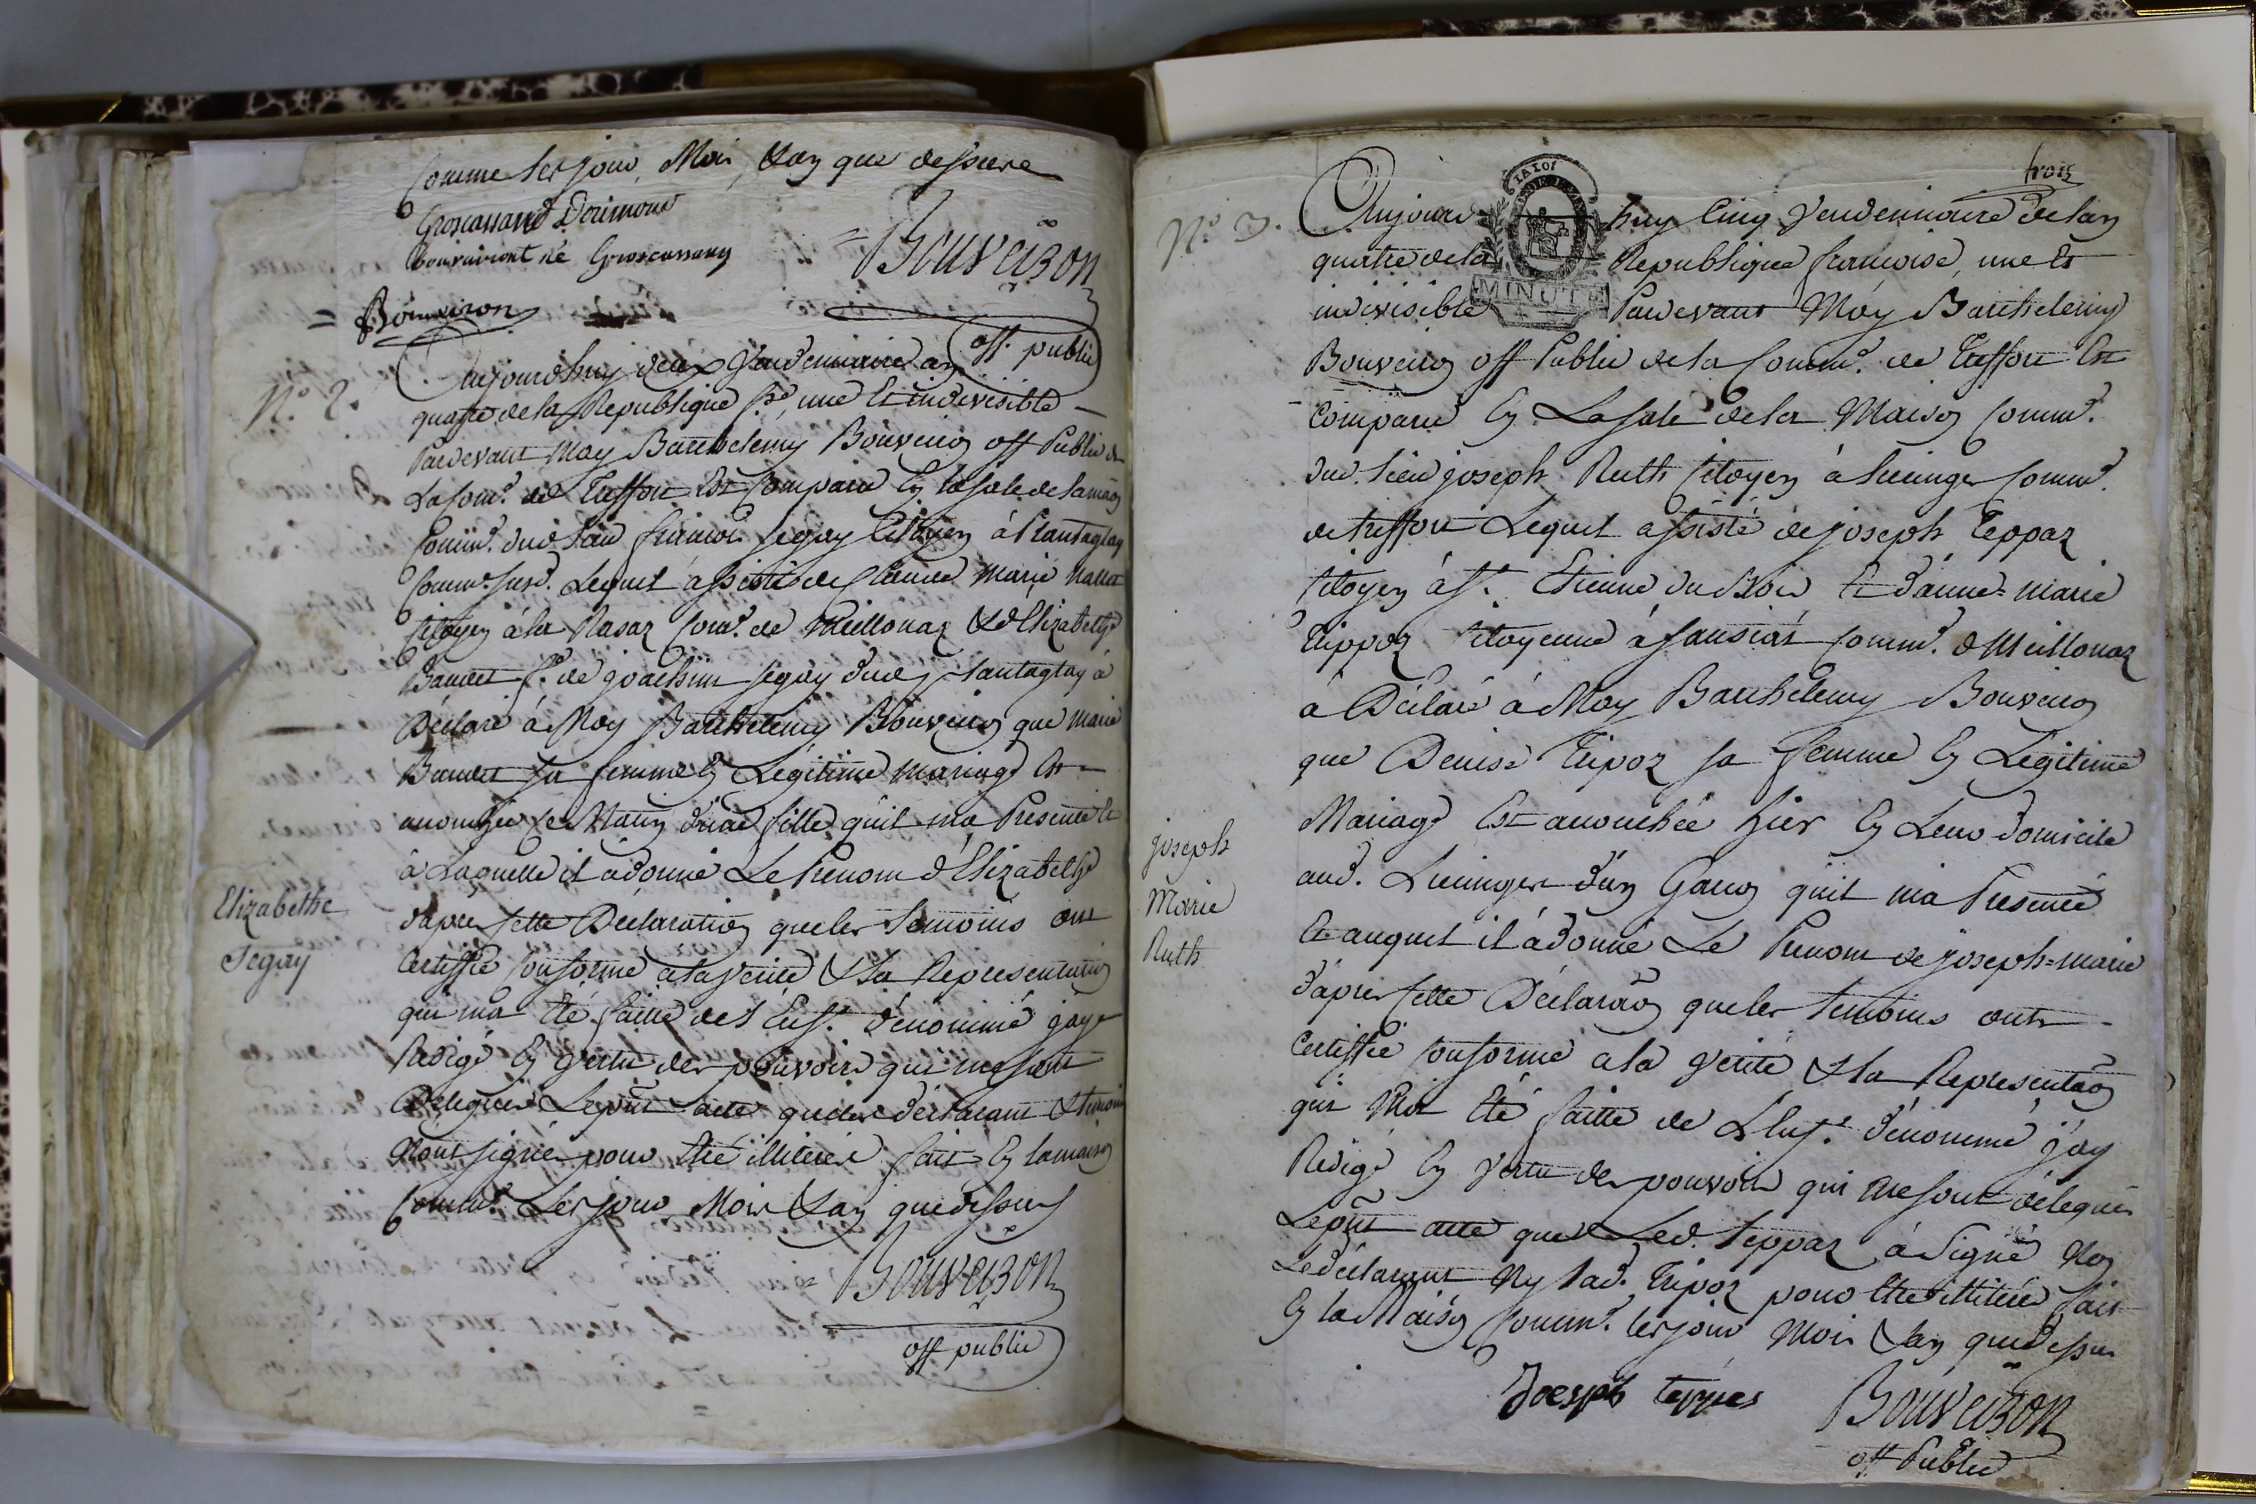 Comme les jour, Mois, & an que dessus
Groscassand Dorimond
Bouvairont né Groscassand
= Bouveiron
= Bouveiron
off. public
N.° 2.
Aujourdhuy deux Vendemiaire an
quatre de la Republique f.se une et indivisible
Pardevant Moy Barthelemy Bouveiron off Public de
La Com.e de Treffort Est Comparu En la sale de la maison
Comm.e dud. lieu françois Segay Citoyen à Plantaglay
Comm.e susd. Lequel assisté de Claude Marie
Citoyen à la Razaz Com.e de Meillonaz & d'Elizabethe
Baudet f.e de joachim segay dud. plantaglay à
Déclaré à Moy Barthelemy Bouveiron que Marie
Baudet sa femme En Légitime mariage Est
accouchée ce Matin d'une fille qu'il m'a Présenté Et
à Laquelle il à donné Le Prenom d'Elizabethe
d'apres cette Déclaration que les Temoins ont
Certiffié Conforme a la verité & la Representation
qui m'a Eté faitte de l'Enf.t dénommé j'ay
Redigé En Vertu des pouvoirs qui me sont
Délégués Le p̃nt acte que les déclarant & temoins
N'ont signé pour Etre illitéré fait En la maison
Comm.e Les jour Mois & an que dessus
Elizabethe
Segay
= Bouveiron
off public
trois
LA LOI
MINUTE
N.° 3.
Aujourd'huy Cinq Vendemiaire de l'an
quatre de la Republique françoise, une Et
indivisible Pardevant Moy Barthelemy
Bouveiron off Public de la Comm.e de Treffort Est
Comparu En La sale de la Maison Comm.e
dud. lieu joseph Ruth Citoyen à Lucinges Comm.e
de treffort Lequel assisté de joseph Teppaz
Citoyen à S.t Etienne du Bois Et d'anne=marie
Trippoz Citoyenne à Sansiat Comm.e de Meillonaz
à Déclaré à Moy Barthelemy Bouveiron
que Denise Tripoz sa femme En Légitime
Mariage Est accouchée hier En Leur domicile
aud. Lucinges d'un Garçon qu'il m'a Présenté
Et auquel il à donné Le Prenom de joseph=marie
d'apres cette Déclarãon que les temoins ont
Certiffié conforme a la verité & la Représentãon
qui M'a Eté faitte de L'Enf.t dénommé j'ay
Redigé En Vertu des pouvoirs qui me sont délegués
Le p̃nt acte que Led. Teppaz à Signé Non
Le déclarant Ny lad. Tripoz pour Etre illitéré fait
En la Maison Comm.e les jour Mois & an que dessus
joseph
Marie
Ruth
Joesph teppas
Bouveiron
off Public